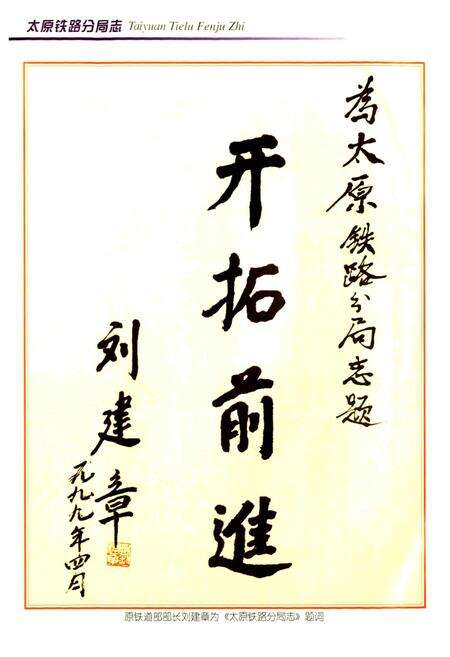 太原铁路分局志 Taiyuan Tielu Fenju Zhi
為太原铁路分局志题
开拓前進
刘建章
一九九九年四月
原铁道部部长刘建章为《太原铁路分局志》题词